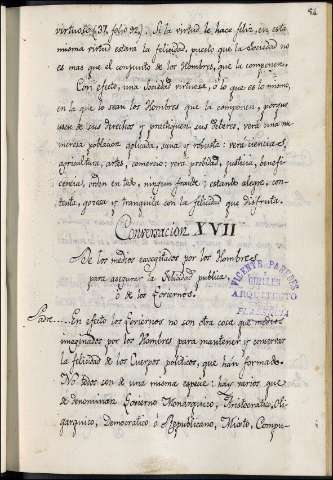 94
virtuoso (37. folio 92). Si la virtud le hace feliz, en esta
misma virtud estará la felicidad, puesto que la Sociedad no
es mas que el conjunto de los Hombres, que la componen.
Con efeto, una Sociedad virtuosa, ó lo que es lo mismo,
en la que lo sean los Hombres que la componen, porque
usen de sus derechos y practiquen sus deberes, será una nu-
merosa poblacion aplicada, sana y robusta: verá ciencias,
agricultura, artes, comercio: verá probidad, justicia, benefi-
cencia, orden en todo, ningun fraude; estará alegre, con-
tenta, gozosa y tranquila con la felicidad que disfruta.
Conversacion XVII
De los medios excogitados por los Hombres
para asegurar la felicidad publica
ó de los Goviernos.
VICENTE PAREDES
GUILLEN
ARQUITECTO
PLASENCIA
Padre....En efeto los Goviernos no son otra cosa que medios
imaginados por los Hombres para mantener y conservar
la felicidad de los Cuerpos politicos, que hán formado.
No todos son de una misma especie: hay varios que
se denominan Govierno Monarquico, Aristocratico, Oli-
garquico, Democratico ó Republicano, Misto, Compu-